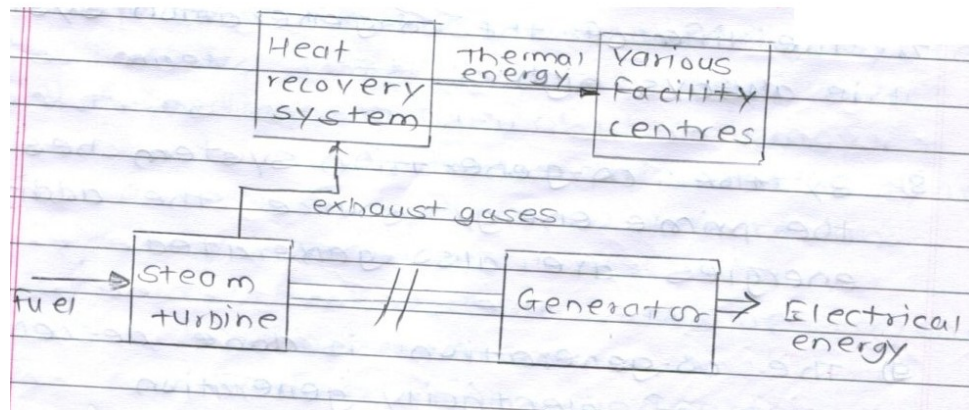 Heat
recovery
system
Thermal
energy
Various
Facility
centres
exhaust gases
fuel
Steam
turbine
Generator
Electrical
energy